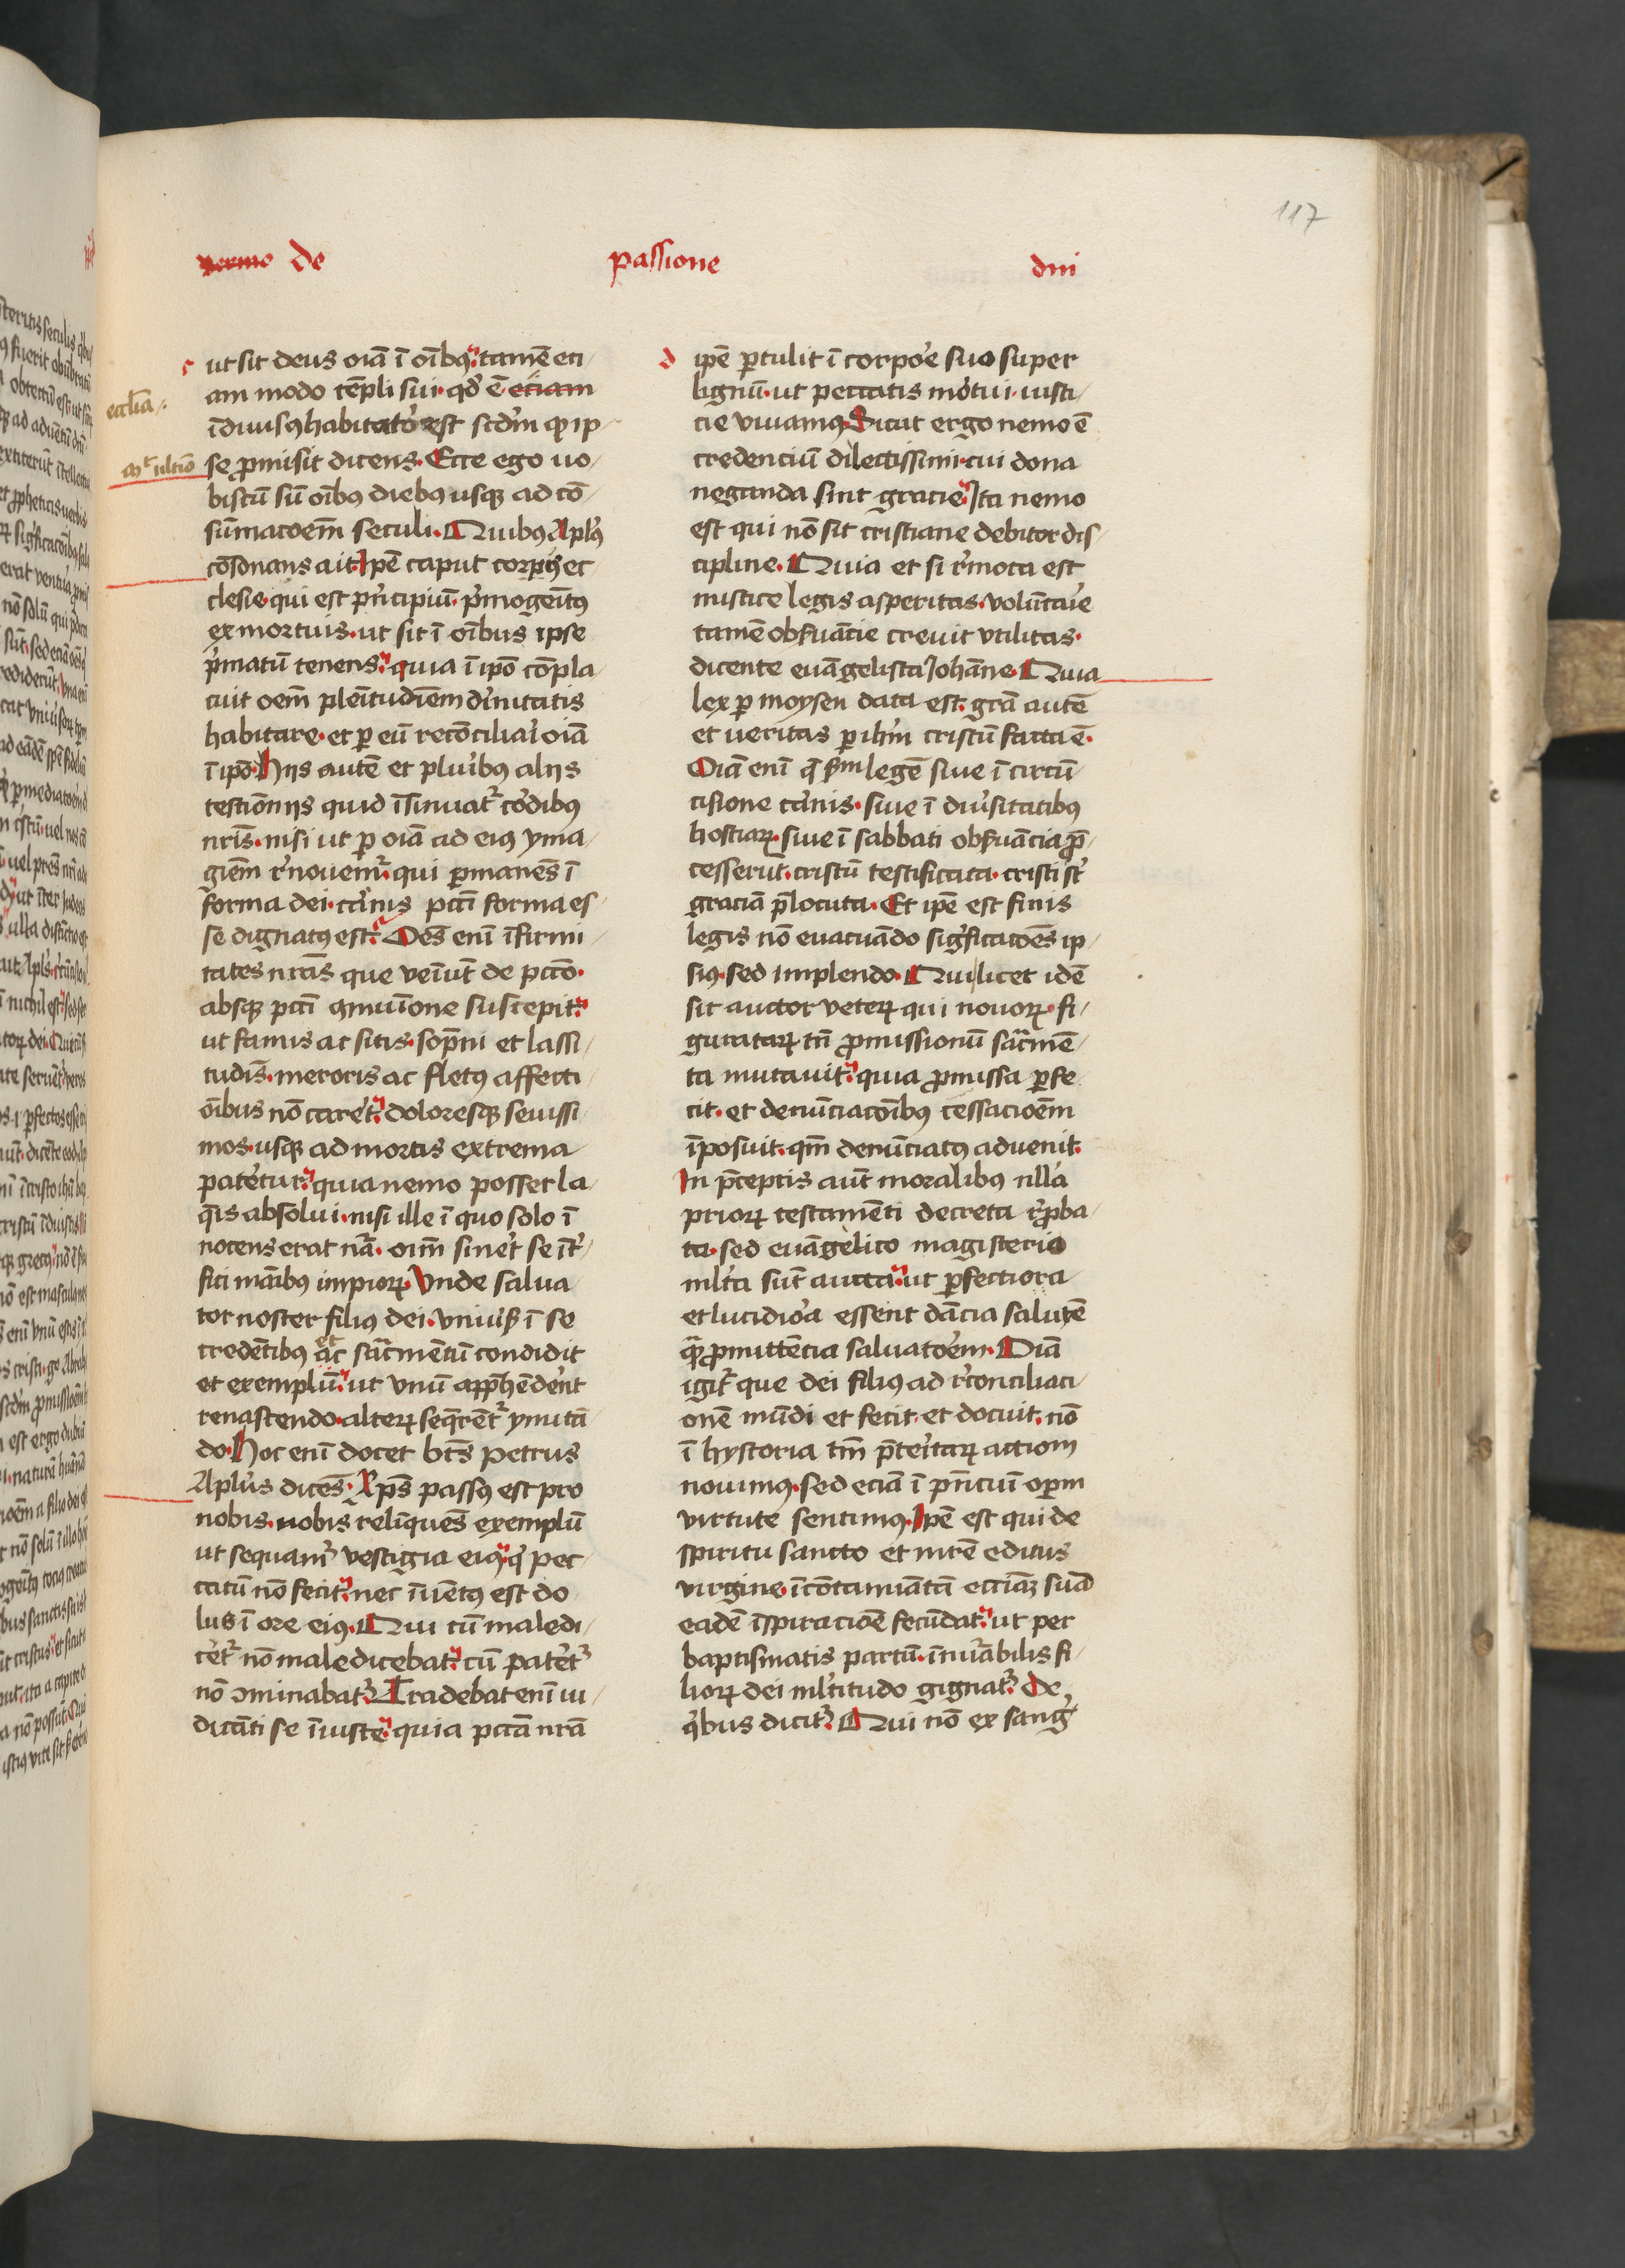 117
sermo de passione dni
c
ut sit deus oīa ī oībꝰ tamē eti
am modo tēpli sui qd̓ ē etiam
eccl̄ia
īdiuisꝰ habitator̓ est scdm̄ ꝙ ip
se ꝓmisit dicens Ecce ego uo
biscū sū oībus diebꝰ usqꝫ ad cō
sūmacoēm seculi Quibus Apl̓s
cōsonans ait Ipē caput corpis ec
clesie qui est pn̓cipiū p̓mogeītꝰ
ex mortuis ut sit ī oībus ipse
p̓matū tenens quia ī ipō cōpla
cuit oēm pleītudīem diuinitatis
habitare et ꝑ eū recōciliar̓i oīa
ī ipō Hijs autē et plur̓ibus alijs
testiōnijs quid īsinuat̓ cor̓dibus
nr̄is nisi ut ꝑ oīa ad eiꝰ yma
giēm r̓nouem̓ qui ꝑmanēs ī
forma dei carnis pcc̄i forma es
se dignatꝰ est Oēs enī īfirmi
tates nrās que veniūt de pccō
absqꝫ pcc̄i ꝯmuīone suscepit
ut famis ac sitis sopni et lassi
tudīs meroris ac fletꝰ affecti
oībus nō caret̓ doloresqꝫ seuissi
mos usqꝫ ad mortis extrema
pater̓tur quia nemo posset la
q̄is absolui nisi ille ī quo solo ī
nocens erat nr̄a oīm siner̓t se īt̓
fici māibus impioꝝ Vnde salua
tor noster filiꝰ dei vniuer̓s ī se
credētibꝰ et ac sacr̄mētū condidit
et exempliū ut vnū appr̄hēder̓ēt
renascendo alterꝝ seq̄rēt̓ ymitā
do Hoc enī docet bt̄s petrus
Apl̓us dicēs Xp̄s passꝰ est pro
nobis nobis relīquēs exemplū
ut sequam̓ vestigia eiꝰ q̓ pec
catū nō fecit nec īuētꝰ est do
lus ī ore eiꝰ Qui cū maledi
cer̓et̓ nō maledicebat cū pater̓et̓
nō ꝯminabat̓ Tradebat enī iu
dicāti se īiuste quia pccā nr̄a
d
ipē ꝑtulit ī corpoe̓ suo super
lignū ut peccatis mor̓tui iusti
cie viuamꝰ Sicut ergo nemo ē
credenciū dilectissimi cui dona
neganda sint gracie Ita nemo
est qui nō sit cristiane debitor dis
cipline Quia et si r̓mota est
mistice legis asperitas volūtarie
tamē obsuācie creuit vtilitas
dicente euāgelista Johāne Quia
lex ꝑ moysen data est grā autē
et ueritas ꝑ ihm̄ cristū facta ē
Oīa enī q̄ scdm legē siue ī circū
cisione carnis siue ī diuer̓sitatibus
hostiaꝝ siue ī sabbati obsuācia p̄
cesserūt cristū testificata cristi st̓
graciā p̄locuta Et ipē est finis
legis nō euacuādo sigficacoēs ip
siꝰ sed implendo Qui licet idē
sit auctor veterꝝ qui nouorꝝ fi
guratarꝝ tn̄ ꝓmissionū sacr̄mē
ta mutauit quia ꝓmissa ꝑfe
cit et denūciacōibus cessacioēm
īposuit qm̄ denūciatꝰ aduenit
In p̄ceptis aūt moralibus nlla̓
prioꝝ testamēti decreta r̓ꝓba
ta sed euāgelico magisterio
ml̓ta sūt aucta ut ꝑfectiora
et lucidior̓a essent dācia salutē
quā ꝓmittēcia saluatoēm Oīa
igit̓ que dei filiꝰ ad r̓conciliati
onē mūdi et fecit et docuit nō
ī hystoria tm̄ p̄ter̓itarꝝ actiom
nouimꝰ sed eciā ī pn̄ciū oꝑm
virtute sentimꝰ Ipē est qui de
spiritu sancto et mr̄e editus
virgine īcōtamiātā ecc̄iaꝫ suā
eadē īspiracioē fecūdat ut per
baptismatis partū īnūr̓abilis fi
lioꝝ dei ml̓titudo gignat̓ De
q̓bus dicit̓ Qui nō ex sang̓